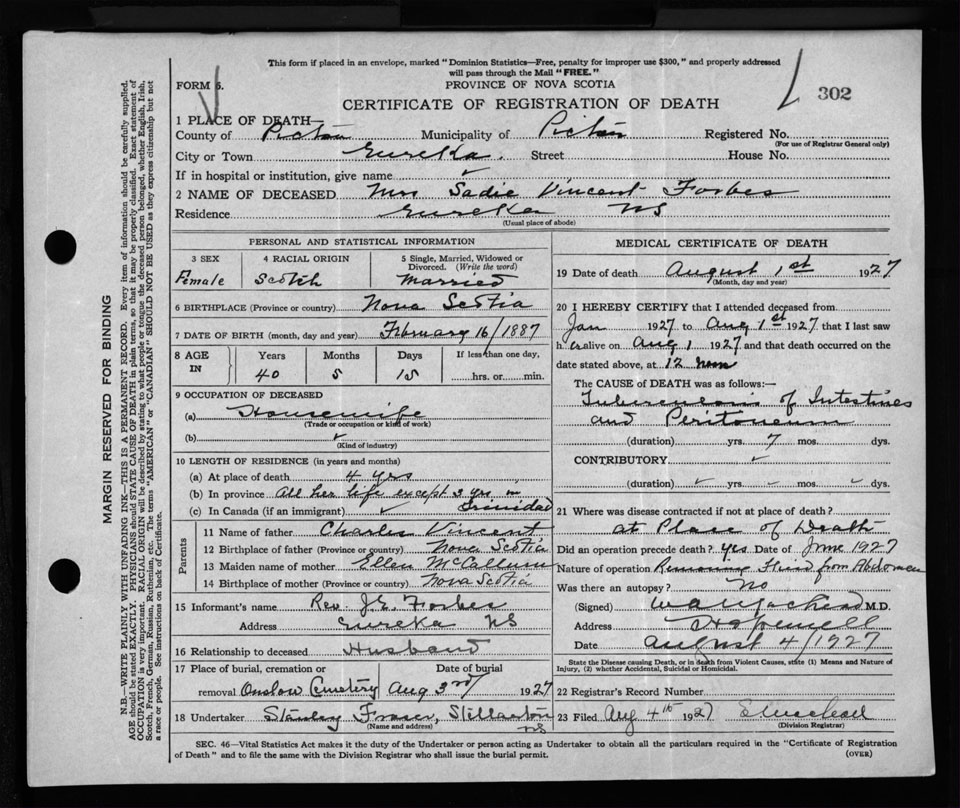 This form if placed in an envelope, marked "Dominion Statistics—Free, penalty for improper use $300," and properly addressed
will pass through the Mail "FREE."
FORM 6.
PROVINCE OF NOVA SCOTIA
302
CERTIFICATE OF REGISTRATION OF DEATH
1 PLACE OF DEATH—
County of Pictou Municipality of Pictou Registered No.
(For use of Registrar General only)
City or Town Eureka. Street House No.
If in hospital or institution, give name ✓
2 NAME OF DECEASED Mrs Sadie Vincent Forbes
Residence Eureka NS
(Usual place of abode)
PERSONAL AND STATISTICAL INFORMATION
3 SEX 4 RACIAL ORIGIN 5 Single, Married, Widowed or
Divorced. (Write the word)
Female Scotch Married
6 BIRTHPLACE (Province or country) Nova Scotia
7 DATE OF BIRTH (month, day and year) February 16/1887
8 AGE IN Years Months Days If less than one day,
40 5 15 hrs. or min.
9 OCCUPATION OF DECEASED
(a) Housewife
(Trade or occupation or kind of work)
(b) ✓
(Kind of industry)
10 LENGTH OF RESIDENCE (in years and months)
(a) At place of death 4 yrs
(b) In province All her life except 3 yrs in
(c) In Canada (if an immigrant) ✓ Trinidad
Parents
11 Name of father Charles Vincent
12 Birthplace of father (Province or country) Nova Scotia
13 Maiden name of mother Ellen McCallum
14 Birthplace of mother (Province or country) Nova Scotia
15 Informant's name Rev. J.E. Forbes
Address Eureka NS
16 Relationship to deceased Husband
17 Place of burial, cremation or Date of burial
removal Onslow Cemetery Aug 3rd 1927
18 Undertaker Stanley Fraser, Stellarton
(Name and address) NS
MEDICAL CERTIFICATE OF DEATH
19 Date of death August 1st 1927
(Month, day and year)
20 I HEREBY CERTIFY that I attended deceased from
Jan 1927 to Aug 1st 1927 that I last saw
h er alive on Aug 1 1927 and that death occurred on the
date stated above, at 12 noon
The CAUSE OF DEATH was as follows:—
Tuberculosis of Intestines
and Peritoneum
(duration) yrs. 7 mos. dys.
CONTRIBUTORY ✓
(duration) yrs. mos. dys.
21 Where was disease contracted if not at place of death?
at Place of Death
Did an operation precede death? Yes Date of June 1927
Nature of operation Removing Fluid from Abdomen
Was there an autopsy? No
(Signed) M.D.
Address Hopewell
Date August 4/1927
State the Disease causing Death, or in death from Violent Causes, state (1) Means and Nature of
Injury, (2) whether Accidental, Suicidal or Homicidal.
22 Registrar's Record Number
23 Filed Aug 4th 1927
(Division Registrar)
SEC. 46—Vital Statistics Act makes it the duty of the Undertaker or person acting as Undertaker to obtain all the particulars required in the "Certificate of Registration
of Death" and to file the same with the Division Registrar who shall issue the burial permit.
(OVER)
MARGIN RESERVED FOR BINDING
N.B.—WRITE PLAINLY WITH UNFADING INK—THIS IS A PERMANENT RECORD. Every item of information should be carefully supplied.
AGE should be stated EXACTLY. PHYSICIANS should STATE CAUSE OF DEATH in plain terms, so that it may be properly classified. Exact statement of
OCCUPATION is very important. RACIAL ORIGIN will be described by stating to what people or tongue the deceased person belonged, whether English, Irish,
Scotch, French, German, Russian, Ruthenian, etc. The terms "AMERICAN" or "CANADIAN" SHOULD NOT BE USED as they express citizenship but not
a race or people. See instructions on back of Certificate.